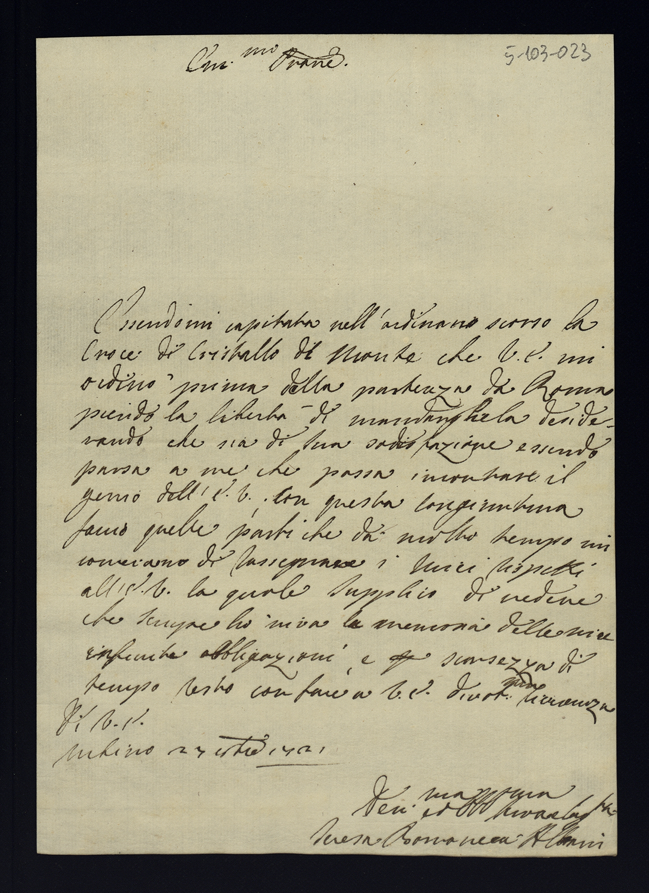 Em.mo Prone.
5-103-023
Essendomi capitata nell'ordinario scorso la
Croce di Cristallo di Monte che V. E. mi
ordinò prima della partenza da Roma
prendo la libertà di mandargliela deside-
rando che sia di sua sodisfazione essendo
parsa a me che possa incontrare il
genio dell'E. V. Con questa congiuntura
faccio quelle parti che da molto tempo mi
di rassegnare i miei rispetti
all'E. V. la quale supplico di credere
che sempre ho viva la memoria delle mie
infinite obbligazioni, e p scarsezza di
tempo resto con fare a V. E. divot.ma riverenza
Di V. E.
Urbino 27 1721
Dev.ma
ed Obb.ma
Teresa Borromea Albani